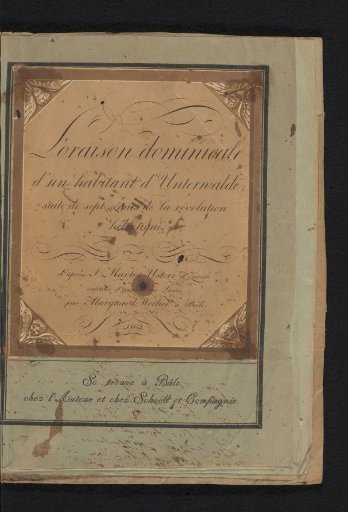 Loraison dominicale
d'un habitant d'Unterwalde,
suite de sept scènes de la révolution
helvétique,
d'après J. Martin Usteri
par Marquard Wocher à Bâle.
1803
Se trouve à Bâle,
chez l'Auteur et chez Schoell et Compagnie.